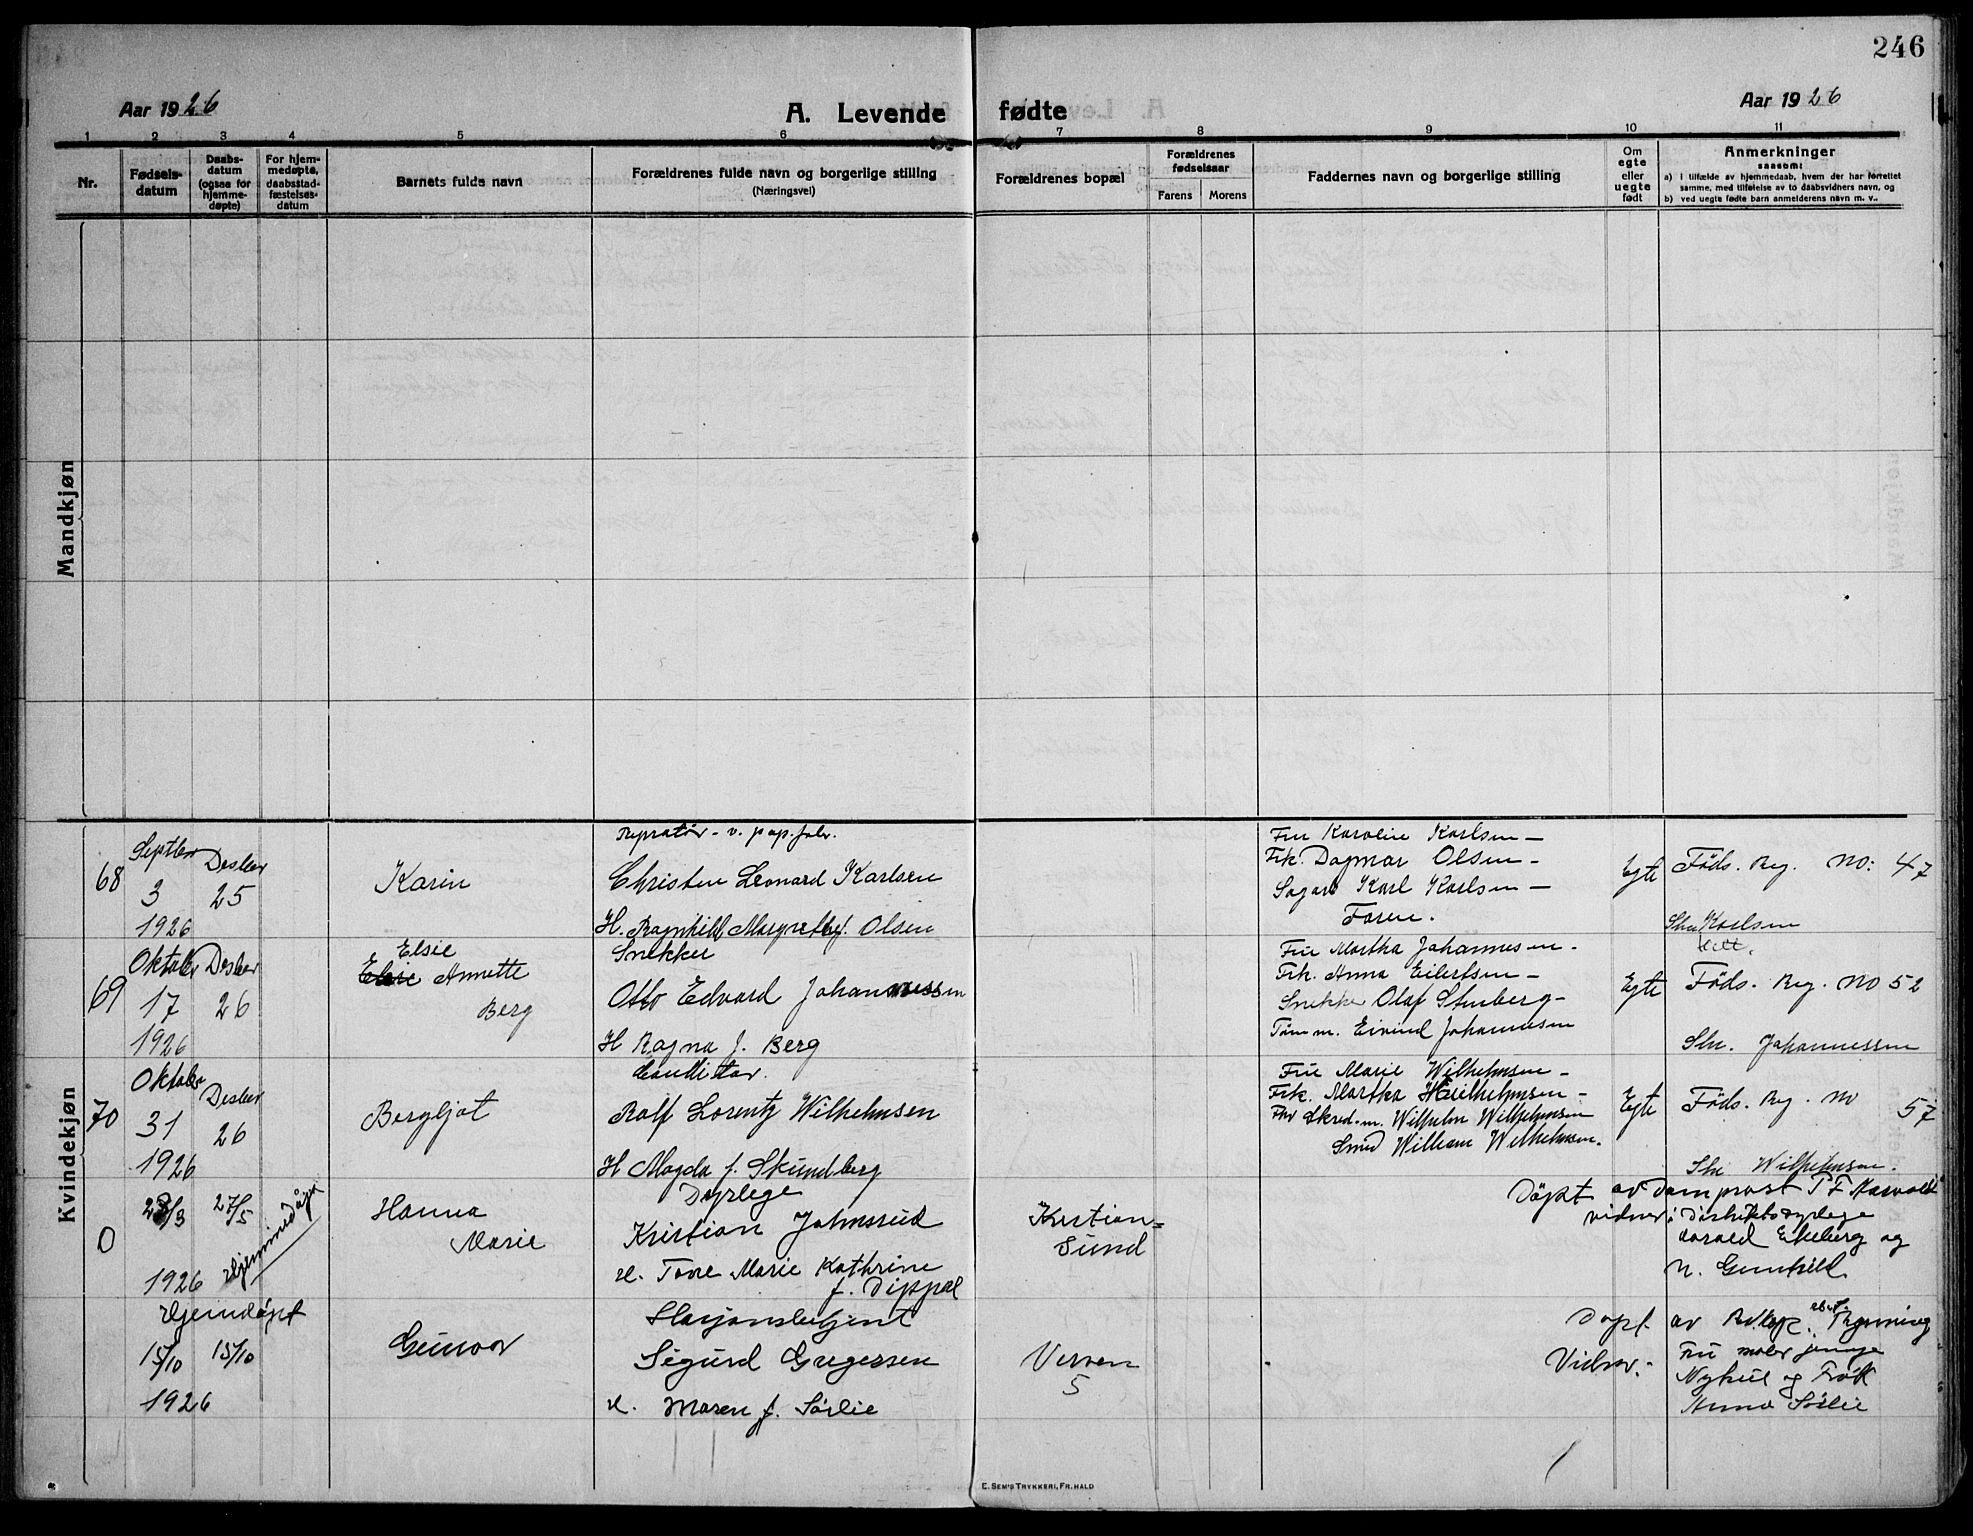 246
Aar 1926
A. Levende fødte
Aar 1926
1 2 3 4 5 6 7 8 9 10 11
Nr.
Fødsels-
datum
Daabs-
datum
(ogsaa for
hjemme-
døpte)
For hjem-
medøpte,
daabsstad-
fæstelses-
datum
Barnets fulde navn
Forældrenes fulde navn og borgerlige stilling
(Næringsvei)
Forældrenes bopæl
Forældrenes
fødselsaar
Farens Morens
Faddernes navn og borgerlige stilling
Om
egte
eller
uegte
født
Anmerkninger
saasom:
a) i tilfælde av hjemmedaab, hvem der har forrettet
samme, med tilføielse av to daabsvidners navn, og
b) ved uegte fødte barn anmelderens navn m. v..
Mandkjøn
Kvindekjøn
68
Septbr
3
1926
Desbr
25
Karin
Repratør - v. pap. fabr.
Christen Leonard Karlsen
H. Ragnhild Margrethe f. Olsen
Fru Karoline Karlsen -
Frk. Dagmar Olsen -
Sagarb Karl Karlsen -
Faren.
Egte
Føds. Reg. No: 47
Karlsen
69
Oktober
17
1926
Desber
26
Elsie
Annette
Berg
Snekker
Otto Edvard Johannessen
H Ragna f. Berg
Fru Martha Johannesen -
Frk. Anna Eilertsen -
Snekker Olaf Stuberg -
Tømm. Eivind Johannesen
Egte
Føds. Reg. No 52
Johannessen
70
Oktober
31
1926
Desber
26
Bergljot
Conditor.
Rolf Lorentz Wilhelmsen
H Magda f. Skundberg
Fru Marie Wilhelmsen -
Frk. Martha Wilhelmsen -
Skred.m. Wilhelm Wilhelmsen
Smed William Wilhelmsen.
Egte
Føds. Reg. No 57
Wilhelmsen.
0
28/3
1926
27/5
Hjemmedøpt
Hanna
Marie
Dyrlege
Kristian Johnsrud
H. Tove Marie Kathrine
f. Dippel
Kristian=
sund
Døpt av Domprost
vidner: Distriktsdyrlege
Harald Ekeberg og
N. Gunhild
Hjemdøpt
15/10 15/10
1926
Gunvor
Stasjonsbetjent
Sigurd Gregersen
H. Maren f. Sørlie
Verven
5
Døpt av
Vidner: Fru
og Frøk
Anna Sørlie
E. SEM'S TRYKKERI, FR.HALD